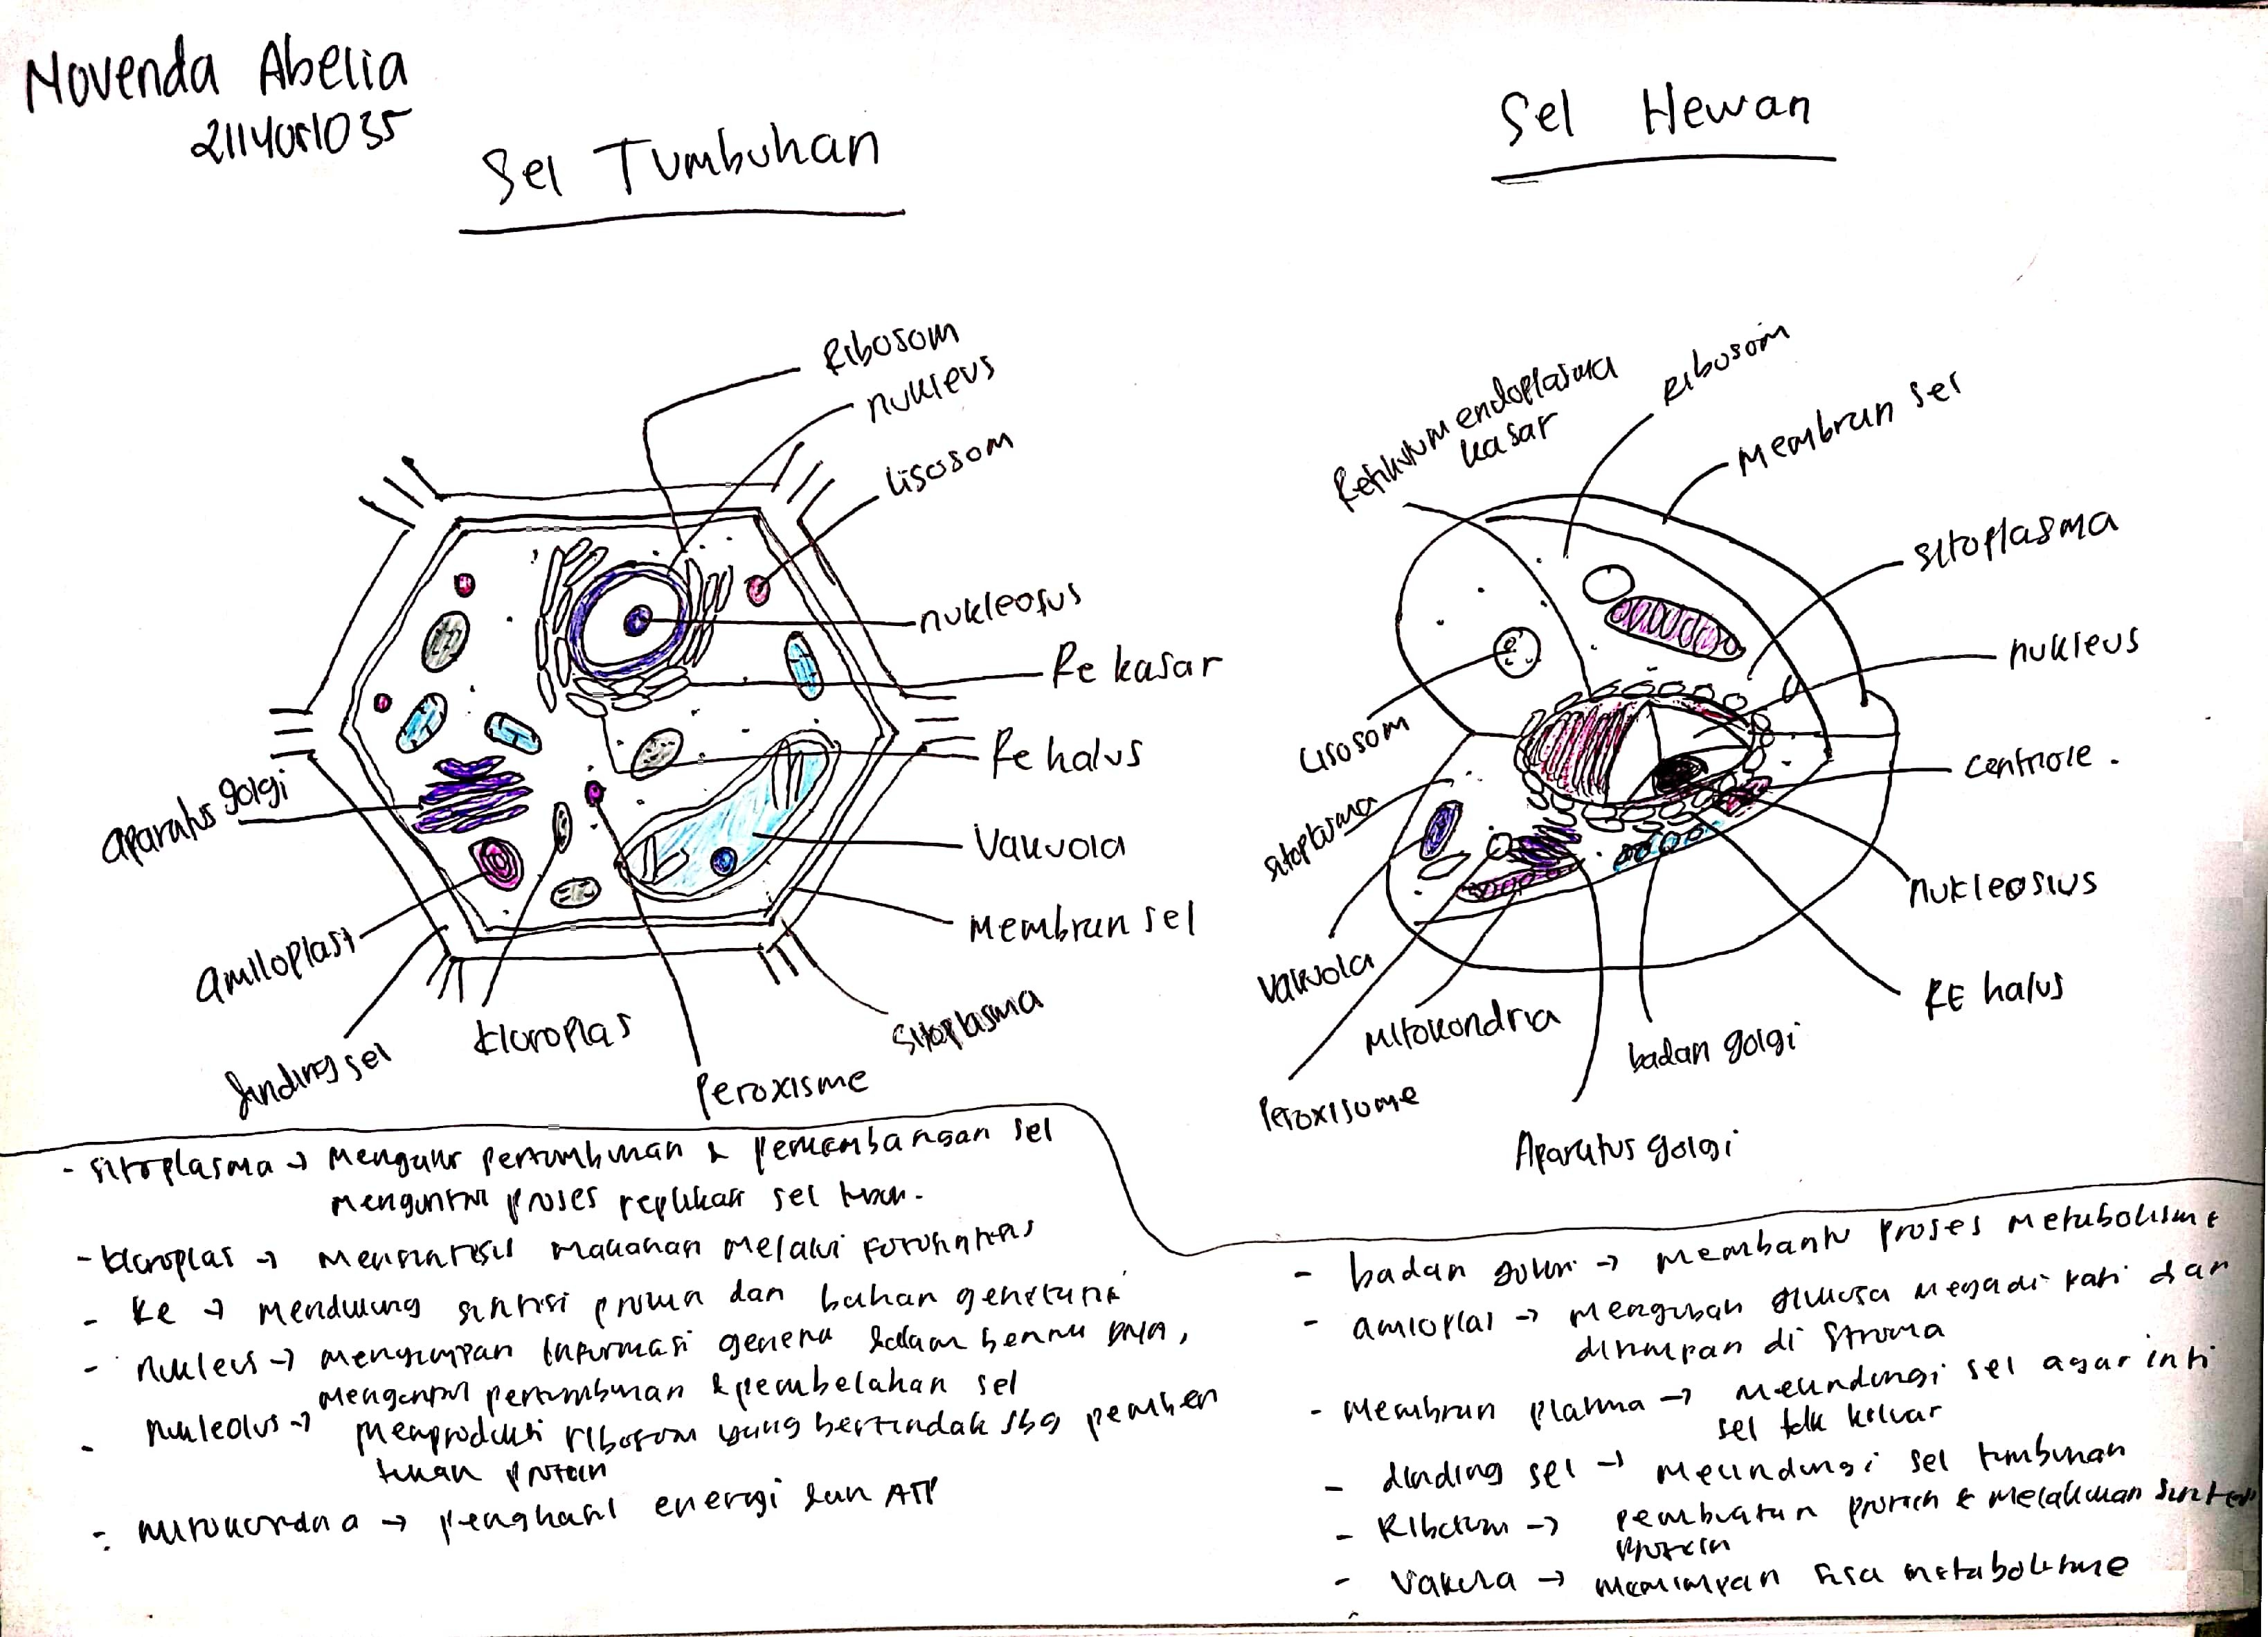 Novenda Abelia
2114051035
Sel Tumbuhan
Sel Hewan
Ribosom
nukleus
Lisosom
nukleosus
Re kasar
Re halus
Vakuola
Membran sel
Sitoplasma
Peroxisme
kloroplas
dinding sel
amiloplast
aparatus golgi
Retikulum endoplasma
kasar
Ribosom
Membran sel
sitoplasma
nukleus
centriole.
nukleosius
RE halus
badan golgi
Aparatus golgi
Mitokondria
Peroxisome
Vakuola
sitoplasma
Lisosom
- sitoplasma → Mengatur pertumbuhan & perkembangan sel
mengontrol proses replikasi sel
- kloroplas → Mensintesis makanan melalui fotosintesis
- Re → Mendukung sintesis dan bahan genetik
- nukleus → menyimpan informasi genetik dalam bentuk DNA,
mengontrol pertumbuhan & pembelahan sel
- nukleolus → memproduksi ribosom yang bertindak sbg pemben
tukan protein
- mitokondria → penghasil energi dan ATP
- badan golgi → membantu proses metabolisme
- amioplas → mengubah glukosa megadi pati dan
disimpan di stroma
- Membran plasma → melindungi sel agar inti
sel tdk keluar
- dinding sel → melindungi sel tumbuhan
- Ribosom → pembuatan protein & melakukan sintesis
protein
- Vakula → menimpan sisa metabolisme